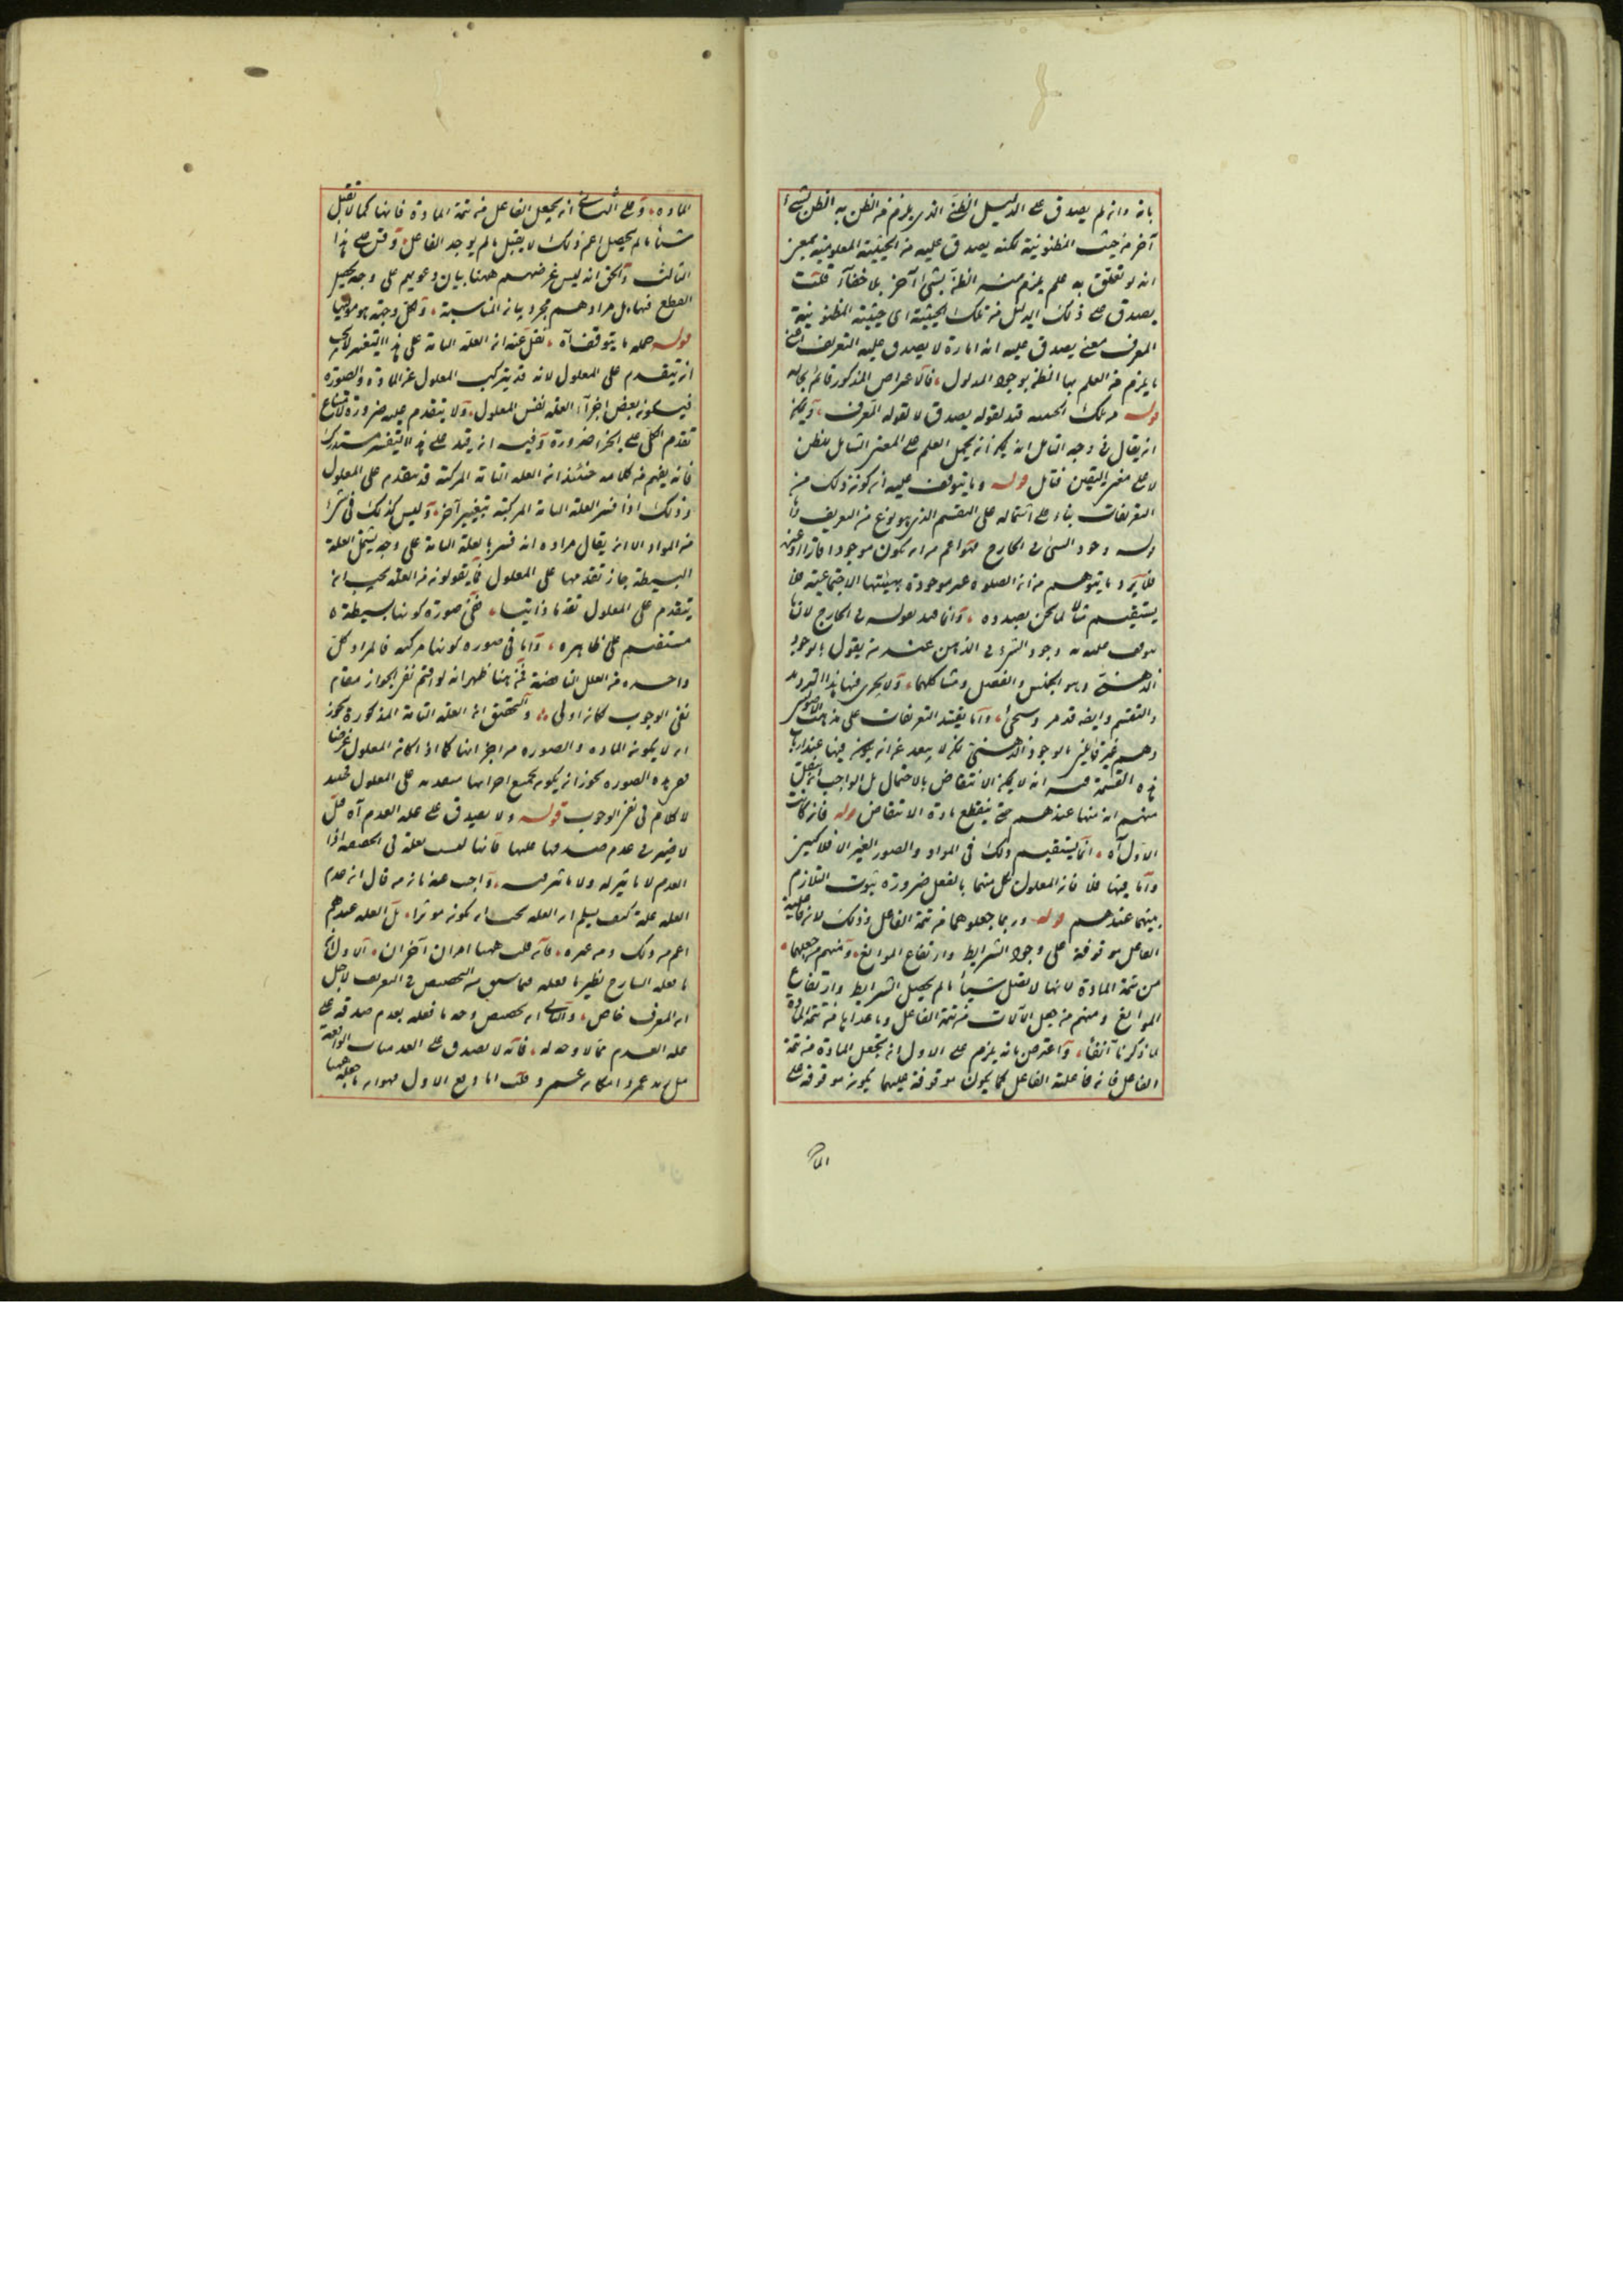 بانه وان لم يصدق على الدليل الظنى الذى يلزم من الظن به الظن بشئ
آخر من حيث المظنونية لكنه يصدق عليه من الحيثية المعلومية بمعنى
انه لو تعلق به علم يلزم منه الظن بشئ آخر بلا خفاء قلت
يصدق على ذلك الدليل من تلك الحيثية اى حيثية المظنونية
المعرف معنى يصدق عليه انه امارة لا يصدق عليه التعريف اعنى
ما يلزم من العلم بها الظن بوجود المدلول فالاعتراض المذكور قائم بحاله
قوله من تلك الحيثية قيد لقوله يصدق لا لقوله المعرف ويمكن
ان يقال فى وجه التامل انه يمكن ان يحمل العلم على المعنى الشامل للظن
لا على معنى اليقين فتامل قوله وما يتوقف عليه ان كون ذلك من
التعريفات بناء على اشتماله على التقسيم الذى هو نوع من التعريف
قوله وجود الشئ فى الخارج هو اعم من ان يكون موجودا
فلا يرد ما يتوهم من ان الصلوة غير موجودة بهيئتها الاجتماعية فلا
يستقيم مثالا لما نحن بصدده وانما قيد بقوله فى الخارج لان ما
يتوقف عليه وجود الشئ فى الذهن عند من يقول بالوجود
الذهنى وهو الجنس والفصل وما شاكلهما ولا يجرى فيها هذا الترديد
والتقسيم وايضا قد مر وسيجئ وانما يقيد التعريفات على مذهب
وهم غير قائلين بالوجود الذهنى لكن لا يبعد عن ان يكون فيها عند ارباب
هذه القسمة فيه انه لا يمكن الانتقاض بالاحتمال بل الواجب ان ينقل
منهم انه منها عندهم حتى ينقطع مادة الانتقاض قوله فان كانت
الاول آه انما يستقيم ذلك فى المواد والصور الغير الافلاكيين
واما فيها فلا فان المعلول لكل منهما بالفعل ضرورة ثبوت التلازم
بينهما عندهم قوله وربما جعلوهما من تتمة الفاعل وذلك لان فاعلية
الفاعل موقوفة على وجود الشرايط وارتفاع الموانع ومنهم من جعلهما
من تتمة المادة لانها لا تقبل شيئا ما لم يحصل الشرايط وارتفاع
الموانع ومنهم من جعل الآلات من تتمة الفاعل وما عداها من تتمة المادة
لما ذكرنا آنفا واعترض بانه يلزم على الاول ان تجعل المادة من تتمة
الفاعل فان فاعلية الفاعل كما يكون موقوفة عليهما يكون موقوفة على
الماد
المادة وعلى الثانى ان يجعل الفاعل من تتمة المادة فانها كما لا تقبل
شيئا ما لم يحصل اعم ذلك لا يقبل ما لم يوجد الفاعل وقس على هذا
الثالث والحق انه ليس غرضهم ههنا بيان دعويهم على وجه يحصل
القطع فيها بل مرادهم مجرد بيان المناسبة ولكل وجهة هو موليها
قوله جملة ما يتوقف آه نقل عنه ان العلة التامة على هذا التفسير لا يجب
ان يتقدم على المعلول لانه قد يتركب المعلول عن المادة والصورة
فيكون بعض اجزاء العلة نفس المعلول ولا يتقدم عليه ضرورة امتناع
تقدم الكل على الجزء ضرورة وفيه ان قيد على هذا التفسير مستدرك
فانه يفهم من كلامه حينئذ ان العلة التامة المركبة قد يتقدم على المعلول
وذلك اذا فسر العلة التامة المركبة بتفسير آخر وليس كذلك فى شئ
من المواد الا ان يقال مراده انه فسر بالعلة التامة على وجه يشمل العلة
البسيطة جاز تقدمها على المعلول فما يقولون من العلة يجب ان
يتقدم على المعلول تقدما ذاتيا ففى صورة كونها بسيطة
مستقيم على ظاهره واما فى صورة كونها مركبة فالمراد كل
واحد من العلل الناقصة فمن هنا ظهر انه لو اقيم نفى الجواز مقام
نفى الوجوب لكان اولى والتحقيق ان العلة التامة المذكورة يجوز
ان لا يكون المادة والصورة من اجزائها كما اذا كان المعلول عرضا
فعلى هذه الصورة يجوز ان يكون بجميع اجزائها متقدمة على المعلول فحينئذ
لا كلام فى نفى الوجوب قوله ولا يصدق على علة العدم آه قيل
لا ضير فى عدم صدقها عليها فانها ليست بعلة فى الحقيقة اذ
العدم لا تاثير له ولا تاثر فيه واجيب عنه بان من قال ان عدم
العلة علة كيف يسلم ان العلة يجب ان يكون موثرا بل العلة عندهم
اعم من ذلك ومن غيره فان قلت ههنا امران آخران الاول ان
ما فعله الشارح نظير ما فعله فيما سبق من التخصيص فى التعريف لاجل
ان المعرف خاص والثانى ان تخصيص وحده ما فعله بعدم صدقه على
علة العدم مما لا وجه له فانه لا يصدق على العدميات الواقعة
مثل عمى زيد وامكان عمرو قلت اما دفع الاول فهو ان ما فعله ههنا